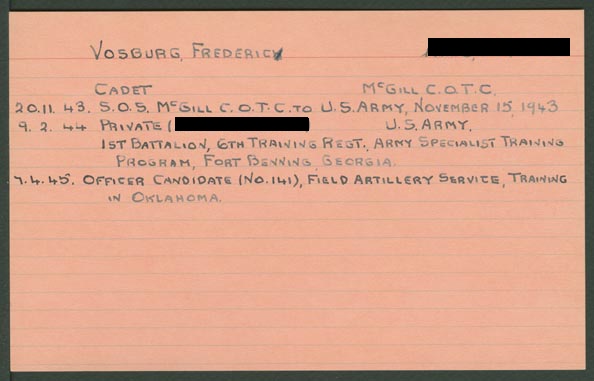 VOSBURG, FREDERICK
CADET McGILL C.O.T.C.
20.11.43. S.O.S. McGILL C.O.T.C. TO U.S. ARMY, NOVEMBER 15, 1943
9.2.44 PRIVATE ( U.S. ARMY,
1ST BATTALION, 6TH TRAINING REGT., ARMY SPECIALIST TRAINING
PROGRAM, FORT BENNING, GEORGIA.
7.4.45. OFFICER CANDIDATE (NO.141), FIELD ARTILLERY SERVICE, TRAINING
IN OKLAHOMA.